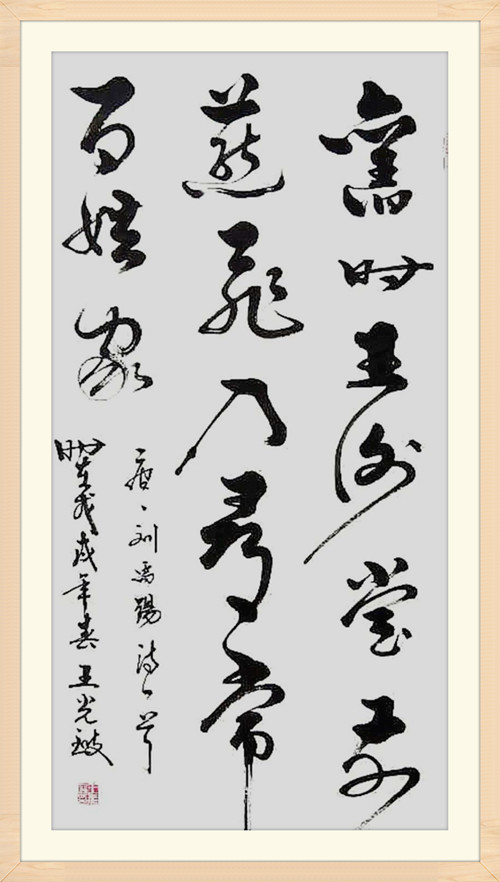 舊时王谢堂前
燕飛入尋常
百姓家
唐、刘禹锡诗一首
时在戊戌年春王光